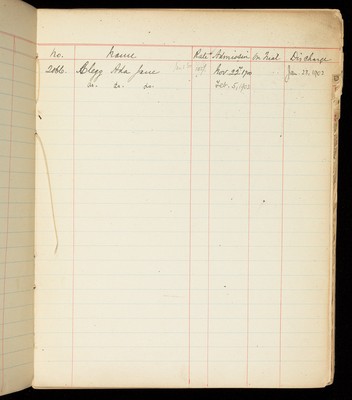 No. Name Rate Admission On Trial Discharge
2066. Clegg Ada Jane Nov. 22nd 1900 Jan. 29, 1903
do. do. do. Feb. 5, 1903